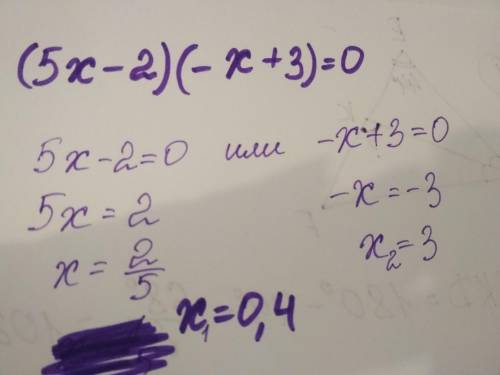 (5x-2)(-x+3)=0
5x-2=0 или -x+3=0
5x=2 -x=-3
x=2/5 x₂=3
x₁=0,4